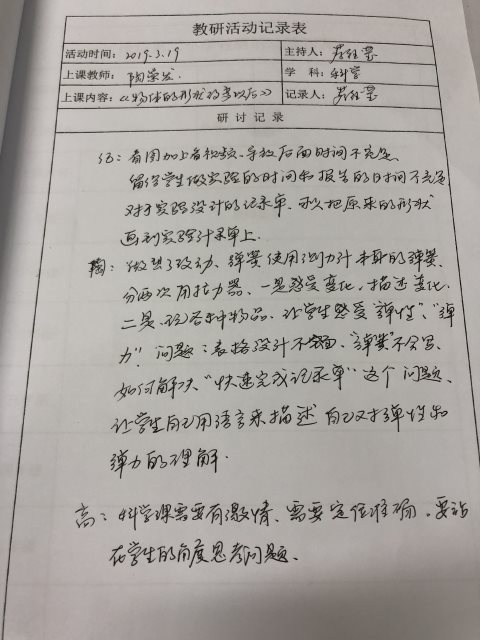 教研活动记录表
活动时间: 2019.3.19 主持人:
上课教师: 陶荣发 学 科: 科学
上课内容: 《物体的形状改变以后》 记录人:
研 讨 记 录
看图加上看视频、导致后面时间不充足、
留给学生做实验的时间和报告的时间不充足
对于实验设计的记录单、可以把原来的形状
画到实验计录单上.
陶: 做些了改动、弹簧使用测力计本身的弹簧、
分两次用拉力器、一是感受变化、描述变化、
二是、玩各中物品、让学生感受“弹性”、“弹
力”. 问题: 表格设计不全面、“弹簧”不会写、
如何解决“快速完成记录单”这个问题、
让学生自己用语言来描述自己对弹性和
弹力的理解.
高: 科学课需要有激情、需要定位准确、要站
在学生的角度思考问题、